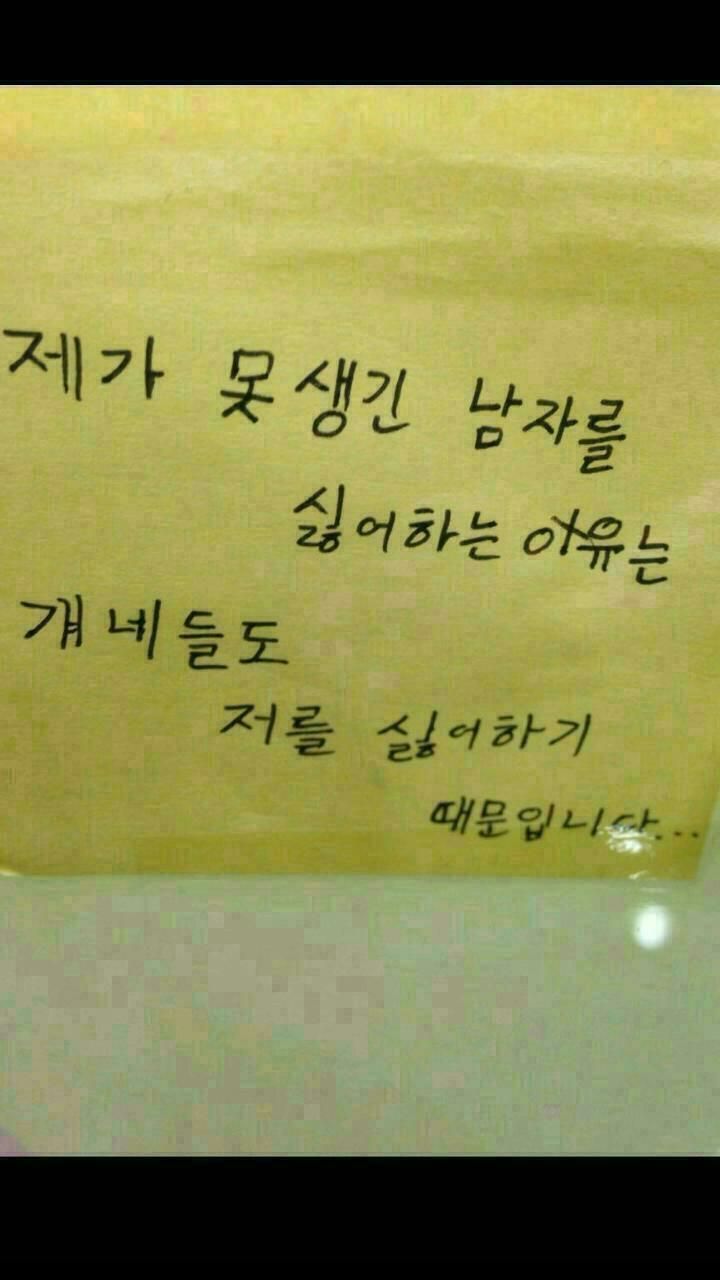 제가 못생긴 남자를
싫어하는 이유는
걔네들도
저를 싫어하기
때문입니다...